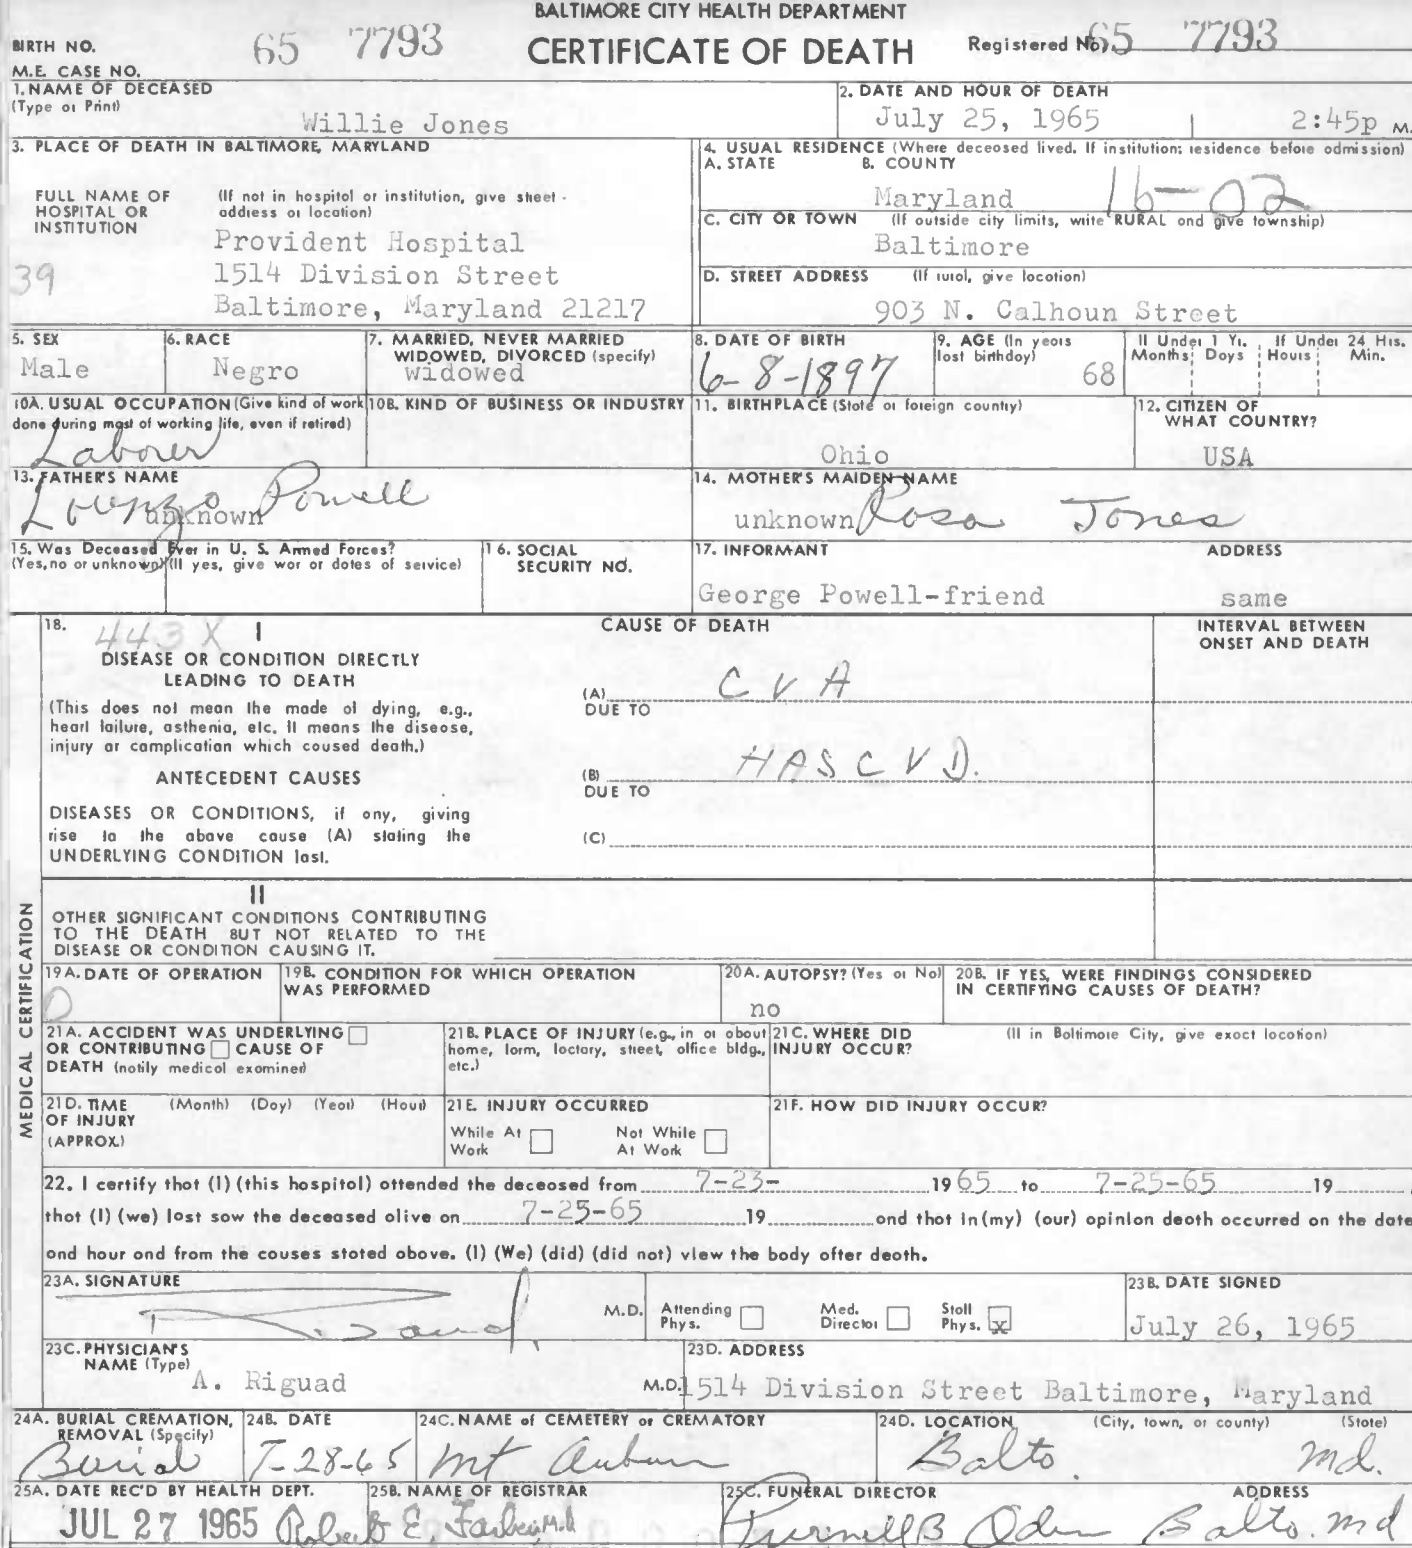 BALTIMORE CITY HEALTH DEPARTMENT
BIRTH NO. 65 7793 CERTIFICATE OF DEATH Registered No. 65 7793
M.E. CASE NO.
1. NAME OF DECEASED
(Type or Print)
Willie Jones
2. DATE AND HOUR OF DEATH
July 25, 1965 2:45p M.
3. PLACE OF DEATH IN BALTIMORE, MARYLAND
FULL NAME OF HOSPITAL OR INSTITUTION
(If not in hospital or institution, give street address or location)
Provident Hospital
39 1514 Division Street
Baltimore, Maryland 21217
4. USUAL RESIDENCE (Where deceased lived. If institution: residence before admission)
A. STATE B. COUNTY
Maryland 16-02
C. CITY OR TOWN (If outside city limits, write RURAL and give township)
Baltimore
D. STREET ADDRESS (If rural, give location)
903 N. Calhoun Street
5. SEX
Male
6. RACE
Negro
7. MARRIED, NEVER MARRIED
WIDOWED, DIVORCED (specify)
widowed
8. DATE OF BIRTH
6-8-1897
9. AGE (In years last birthday)
68
If Under 1 Yr. If Under 24 Hrs.
Months Days Hours Min.
10A. USUAL OCCUPATION (Give kind of work done during most of working life, even if retired)
Laborer
10B. KIND OF BUSINESS OR INDUSTRY
11. BIRTHPLACE (State or foreign country)
Ohio
12. CITIZEN OF WHAT COUNTRY?
USA
13. FATHER'S NAME
unknown Powell
14. MOTHER'S MAIDEN NAME
unknown Rosa Jones
15. Was Deceased Ever in U. S. Armed Forces?
(Yes, no or unknown) (If yes, give war or dates of service)
16. SOCIAL SECURITY NO.
17. INFORMANT ADDRESS
George Powell-friend same
18. 443X I
CAUSE OF DEATH
INTERVAL BETWEEN ONSET AND DEATH
DISEASE OR CONDITION DIRECTLY
LEADING TO DEATH
(This does not mean the mode of dying, e.g.,
heart failure, asthenia, etc. It means the disease,
injury or complication which caused death.)
(A) CVA
DUE TO
ANTECEDENT CAUSES
(B) HASCVD.
DUE TO
DISEASES OR CONDITIONS, if any, giving
rise to the above cause (A) stating the
UNDERLYING CONDITION last.
(C)
II
OTHER SIGNIFICANT CONDITIONS CONTRIBUTING
TO THE DEATH BUT NOT RELATED TO THE
DISEASE OR CONDITION CAUSING IT.
MEDICAL CERTIFICATION
19A. DATE OF OPERATION
0
19B. CONDITION FOR WHICH OPERATION WAS PERFORMED
20A. AUTOPSY? (Yes or No)
no
20B. IF YES, WERE FINDINGS CONSIDERED IN CERTIFYING CAUSES OF DEATH?
21A. ACCIDENT WAS UNDERLYING
OR CONTRIBUTING CAUSE OF
DEATH (notify medical examiner)
21B. PLACE OF INJURY (e.g., in or about
home, farm, factory, street, office bldg.,
etc.)
21C. WHERE DID INJURY OCCUR?
(If in Baltimore City, give exact location)
21D. TIME OF INJURY (APPROX.)
(Month) (Day) (Year) (Hour)
21E. INJURY OCCURRED
While At Work Not While At Work
21F. HOW DID INJURY OCCUR?
22. I certify that (I) (this hospital) attended the deceased from 7-23- 1965 to 7-25-65 19
that (I) (we) last saw the deceased alive on 7-25-65 19 and that in (my) (our) opinion death occurred on the date
and hour and from the causes stated above. (I) (We) (did) (did not) view the body after death.
23A. SIGNATURE
M.D. Attending Phys. Med. Director Staff Phys. x
23B. DATE SIGNED
July 26, 1965
23C. PHYSICIAN'S NAME (Type)
A. Riguad M.D.
23D. ADDRESS
1514 Division Street Baltimore, Maryland
24A. BURIAL CREMATION, REMOVAL (Specify)
Burial
24B. DATE
7-28-65
24C. NAME of CEMETERY or CREMATORY
Mt Auburn
24D. LOCATION (City, town, or county) (State)
Balto. Md.
25A. DATE REC'D BY HEALTH DEPT.
JUL 27 1965
25B. NAME OF REGISTRAR
Robert E. Farber, M.D.
25C. FUNERAL DIRECTOR ADDRESS
Purnell B Oden Balto. Md